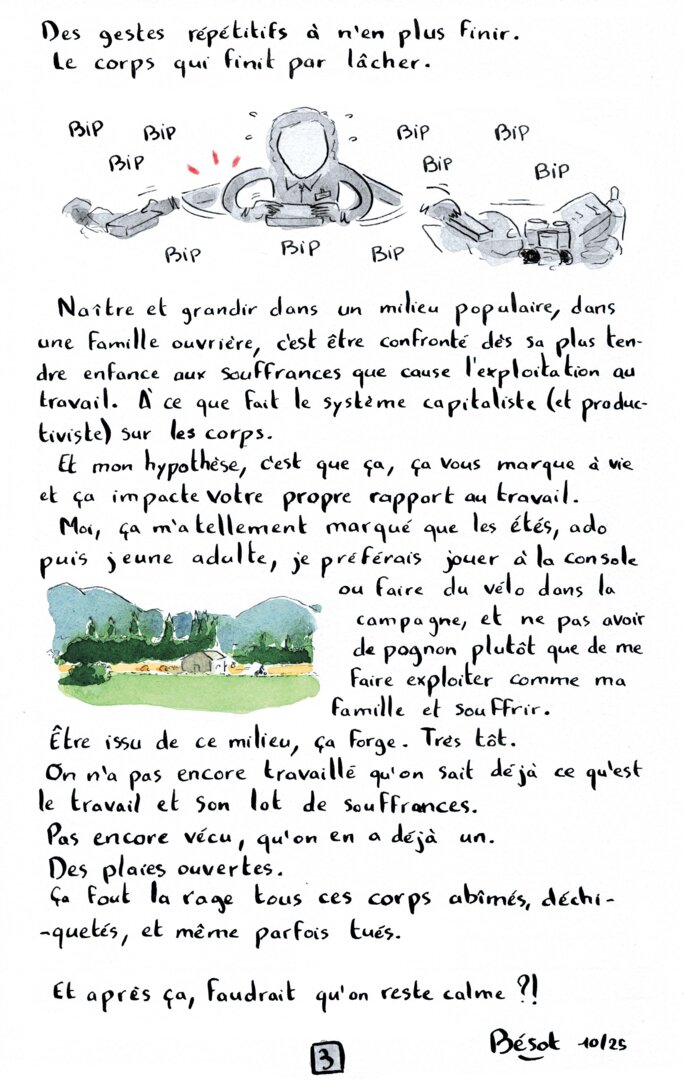 Des gestes répétitifs à n'en plus finir.
Le corps qui finit par lâcher.
BIP BIP BIP BIP
BIP BIP BIP
BIP BIP BIP
Naître et grandir dans un milieu populaire, dans
une famille ouvrière, c'est être confronté dès sa plus ten-
dre enfance aux souffrances que cause l'exploitation au
travail. À ce que fait le système capitaliste (et produc-
tiviste) sur les corps.
Et mon hypothèse, c'est que ça, ça vous marque à vie
et ça impacte votre propre rapport au travail.
Moi, ça m'a tellement marqué que les étés, ado
puis jeune adulte, je préférais jouer à la console
ou faire du vélo dans la
campagne, et ne pas avoir
de pognon plutôt que de me
faire exploiter comme ma
famille et souffrir.
Être issu de ce milieu, ça forge. Très tôt.
On n'a pas encore travaillé qu'on sait déjà ce qu'est
le travail et son lot de souffrances.
Pas encore vécu, qu'on en a déjà un.
Des plaies ouvertes.
Ça fout la rage tous ces corps abîmés, déchi-
-quetés, et même parfois tués.
Et après ça, faudrait qu'on reste calme ?!
Bésot 10/25
3